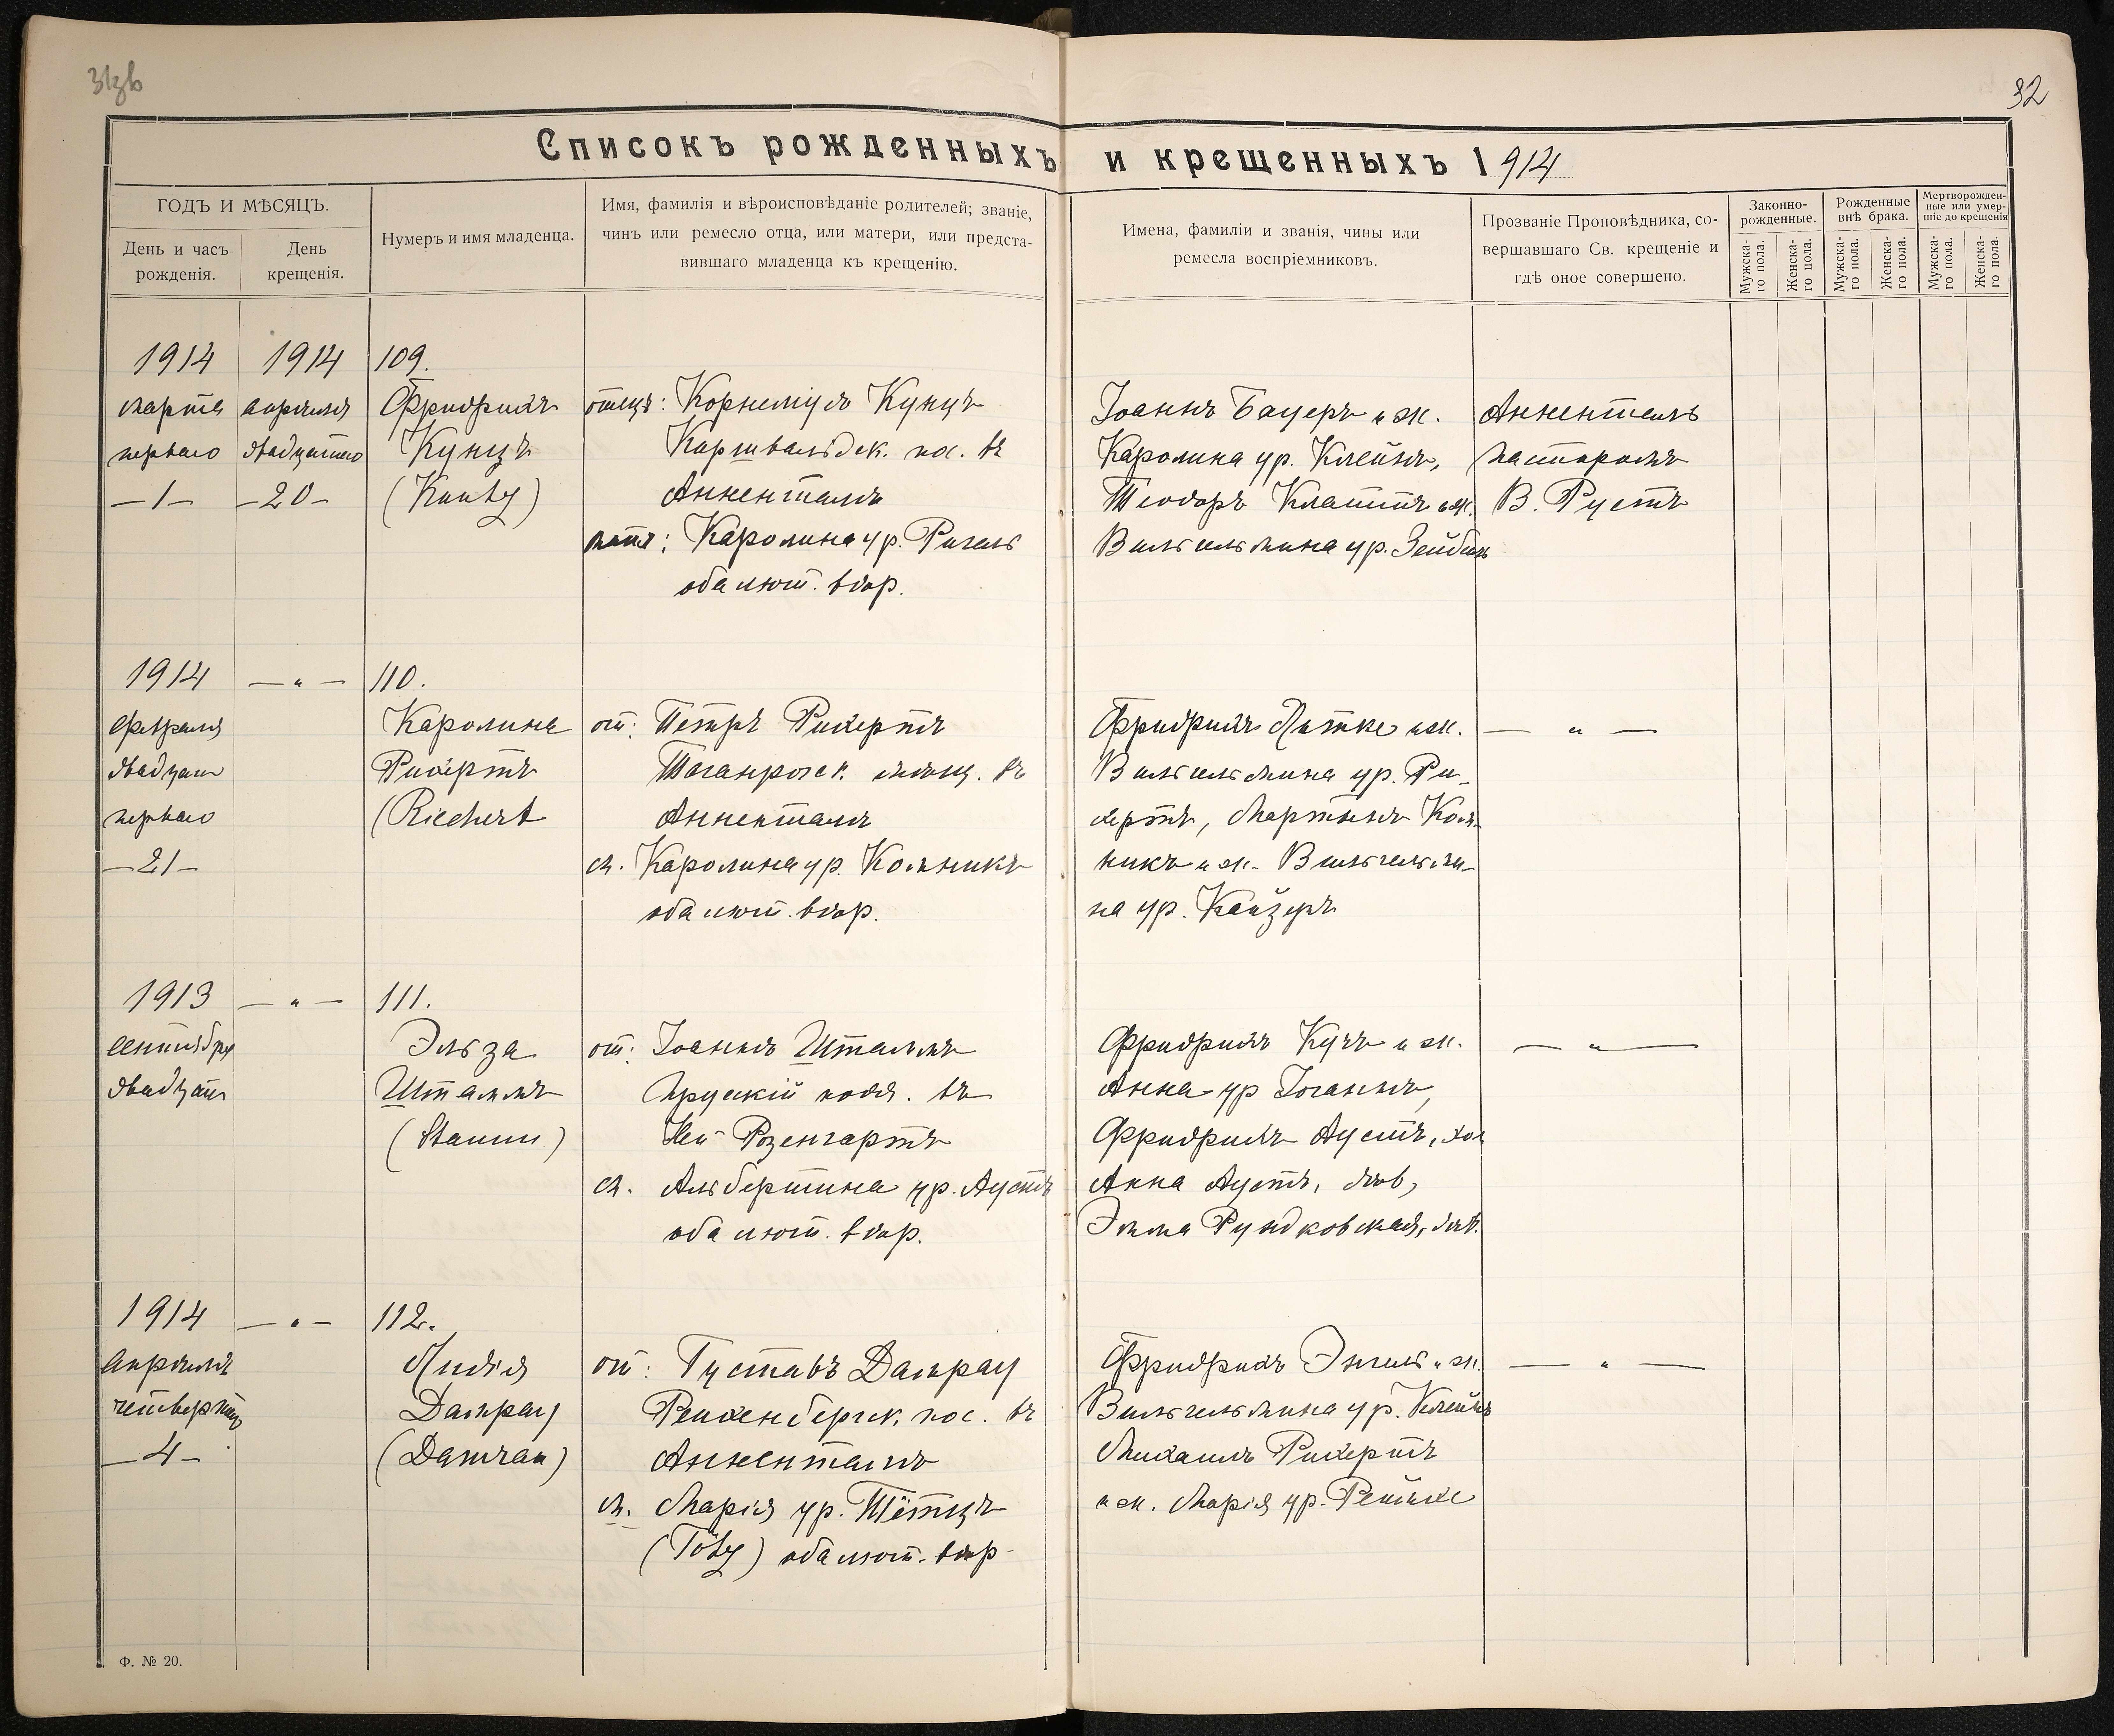 31 зв
32
Списокъ рожденныхъ и крещенныхъ 1914
ГОДЪ И МѢСЯЦЪ.
День и часъ рожденія.
День крещенія.
Нумеръ и имя младенца.
Имя, фамилія и вѣроисповѣданіе родителей; званіе,
чинъ или ремесло отца, или матери, или предста-
вившаго младенца къ крещенію.
Имена, фамиліи и званія, чины или
ремесла воспріемниковъ.
Прозваніе Проповѣдника, со-
вершавшаго Св. крещеніе и
гдѣ оное совершено.
Законно-
рожденные.
Рожденные
внѣ брака.
Мертворожден-
ные или умер-
шіе до крещенія
Мужска-
го пола.
Женска-
го пола.
Мужска-
го пола.
Женска-
го пола.
Мужска-
го пола.
Женска-
го пола.
1914
марта
перваго
—1—
1914
апрѣля
двадцатаго
—20—
109.
Фридрихъ
Кунцъ
(Kuntz)
отецъ: Корнеліусъ Кунцъ
Киршвальдск. пос. въ
Анненталѣ
мать: Каролина ур. Ригель
оба лют. вѣр.
Іоаннъ Бауеръ и ж.
Каролина ур. Клейнъ,
Теодоръ Клаттъ и ж.
Вильгельмина ур. Зейбель
Анненталь
пасторомъ
В. Рустъ
1914
февраля
двадцать
перваго
—21—
— „ —
110.
Каролина
Рихертъ
(Riechert
от: Петръ Рихертъ
Таганрогск. мѣщ. въ
Анненталѣ
м. Каролина ур. Кольникъ
оба лют. вѣр.
Фридрихъ Литке и ж.
Вильгельмина ур. Ри-
хертъ, Мартынъ Коль-
никъ и ж. Вильгельми-
на ур. Кайзеръ
— „ —
1913
сентября
двадцать
— „ —
111.
Эльза
Штаммъ
(Stamm)
от: Іоаннъ Штаммъ
Прускій подд. въ
Ней-Розенгартъ
м. Альбертина ур. Аустъ
оба лют. вѣр.
Фридрихъ Кучъ и ж.
Анна ур Іоганнъ,
Фридрихъ Аустъ, хол
Анна Аустъ, дѣв,
Эмма Рундковская, дѣв.
— „ —
1914
апрѣля
четвертаго
—4—
— „ —
112.
Лидія
Дамрау
(Damrau)
от: Густавъ Дамрау
Рейхенбергск. пос. въ
Анненталѣ
м. Марія ур. Тётцъ
(Tötz) оба лют. вѣр.
Фридрихъ Энгель и ж.
Вильгельмина ур. Клейнъ
Михаилъ Рихертъ
и ж. Марія ур. Реймке
— „ —
Ф. № 20.